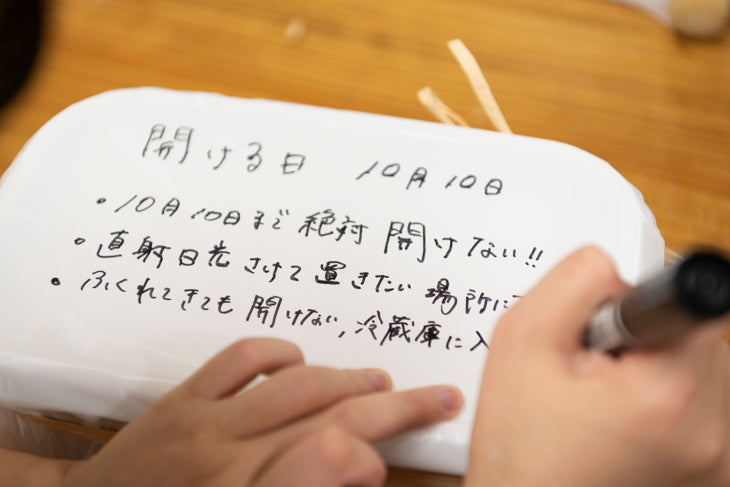 開ける日 10月10日
・10月10日まで絶対開けない!!
・直射日光さけて置きたい場所に
・ふくれてきても開けない,冷蔵庫に入